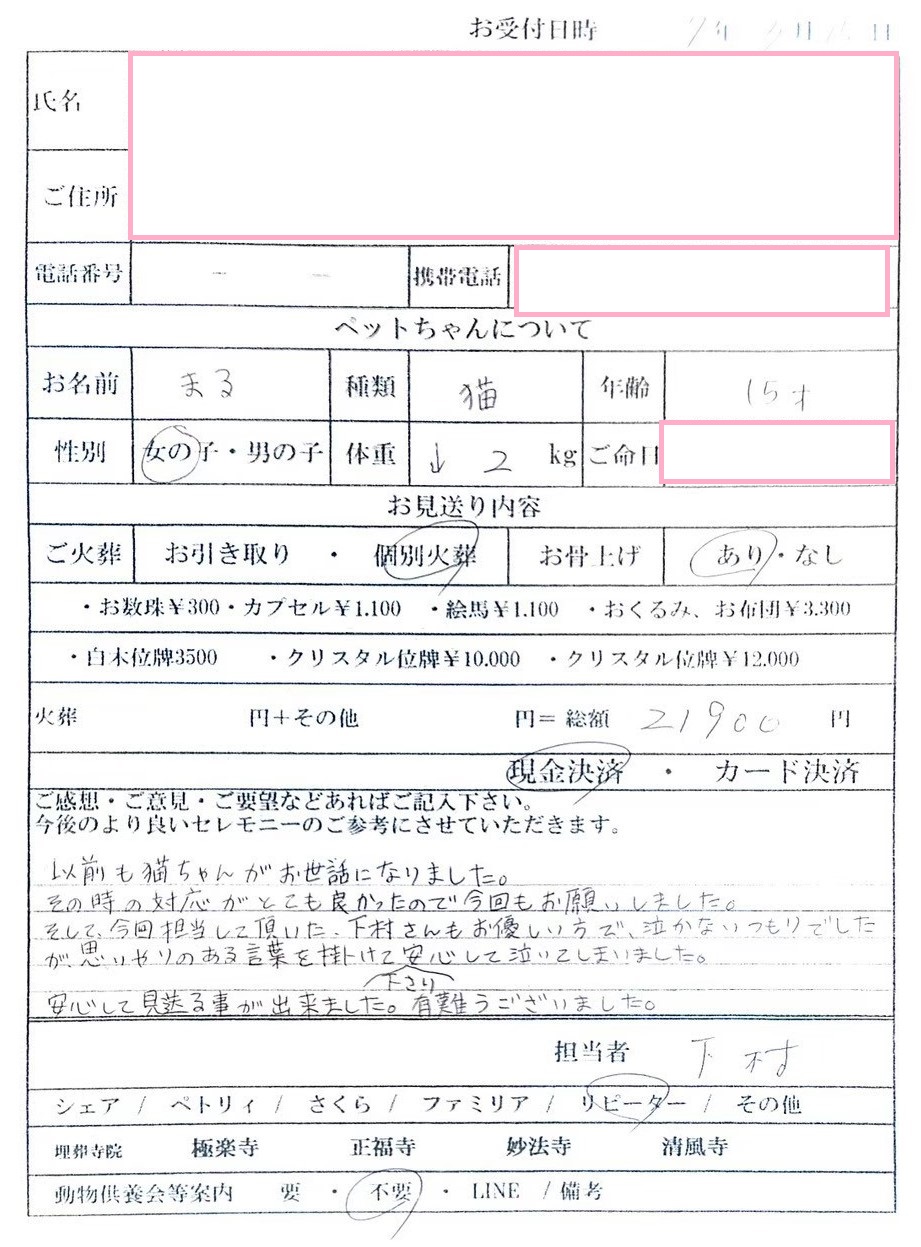 お受付日時 7年 月 日
氏名
ご住所
電話番号 — — 携帯電話
ペットちゃんについて
お名前 まる 種類 猫 年齢 15才
性別 女の子・男の子 体重 ↓ 2 kg ご命日
お見送り内容
ご火葬 お引き取り ・ 個別火葬 お骨上げ あり・なし
・お数珠¥300・カプセル¥1.100 ・絵馬¥1.100 ・おくるみ、お布団¥3.300
・白木位牌3500 ・クリスタル位牌¥10.000 ・クリスタル位牌¥12.000
火葬 円+その他 円= 総額 21900 円
現金決済 ・ カード決済
ご感想・ご意見・ご要望などあればご記入下さい。
今後のより良いセレモニーのご参考にさせていただきます。
以前も猫ちゃんがお世話になりました。
その時の対応がとても良かったので今回もお願いしました。
そして、今回担当して頂いた、下村さんもお優しい方で、泣かないつもりでした
が、思いやりのある言葉を掛けて下さり安心して泣いてしまいました。
安心して見送る事が出来ました。有難うございました。
担当者 下村
シェア / ペトリィ / さくら / ファミリア / リピーター / その他
埋葬寺院 極楽寺 正福寺 妙法寺 清風寺
動物供養会等案内 要 ・ 不要 ・ LINE / 備考